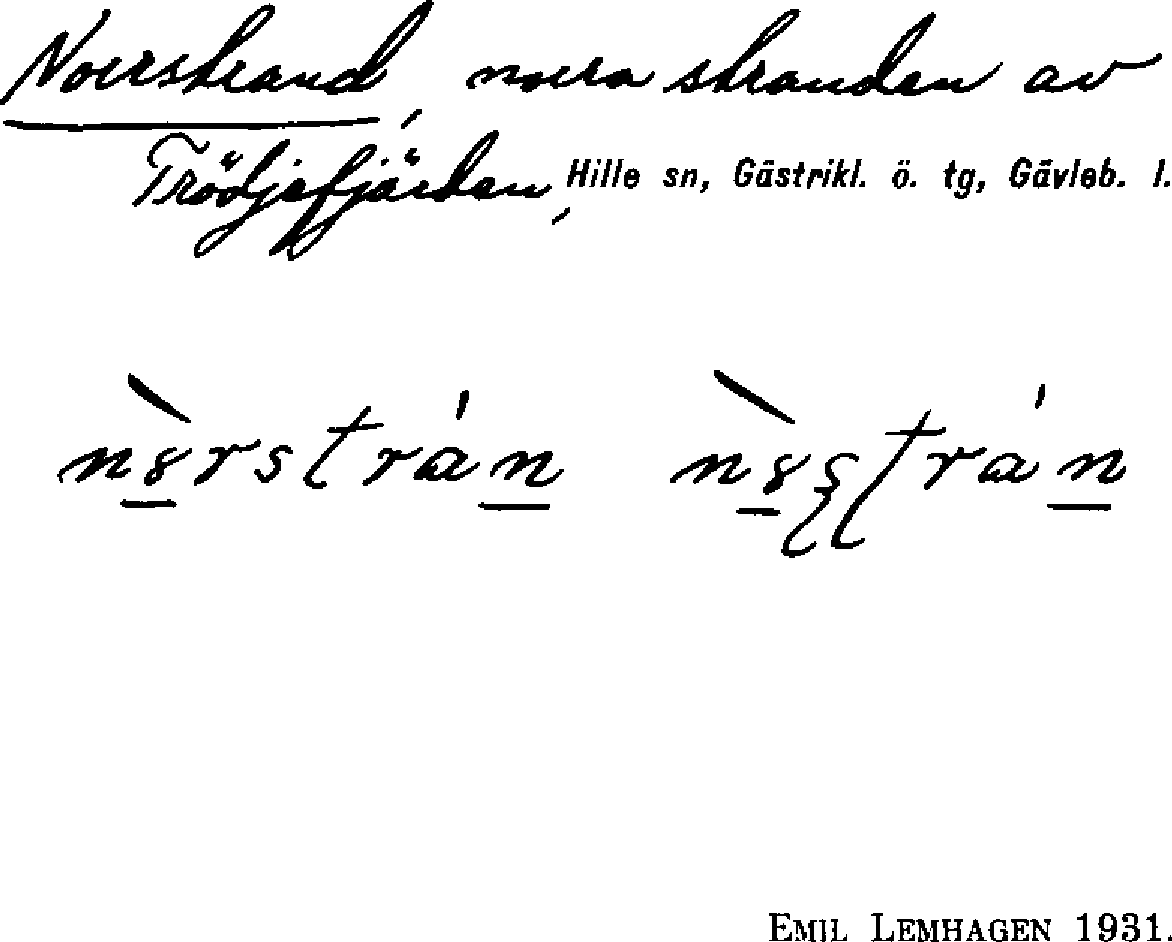 Norrstrand, norra stranden av
Trödjefjärden, Hille sn, Gästrikl. ö. tg, Gävleb. l.
EMIL LEMHAGEN 1931.